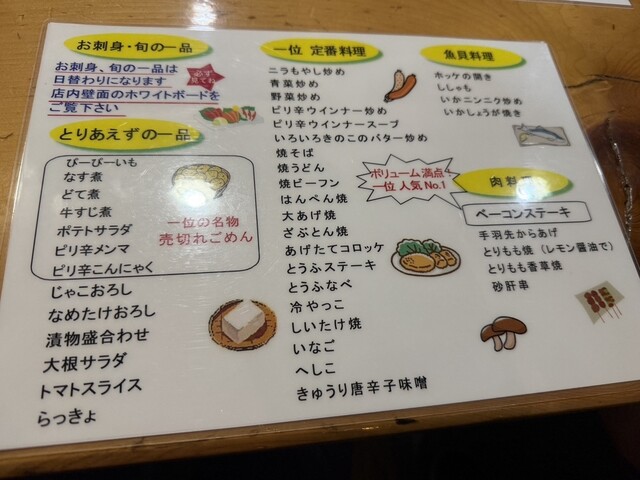 お刺身・旬の一品
お刺身、旬の一品は
日替わりになります
店内壁面のホワイトボードを
ご覧下さい
必ず
見てね
とりあえずの一品
びーびーいも
なす煮
どて煮
牛すじ煮
ポテトサラダ
ピリ辛メンマ
ピリ辛こんにゃく
一位の名物
売切れごめん
じゃこおろし
なめたけおろし
漬物盛合わせ
大根サラダ
トマトスライス
らっきょ
一位 定番料理
ニラもやし炒め
青菜炒め
野菜炒め
ピリ辛ウインナー炒め
ピリ辛ウインナースープ
いろいろきのこのバター炒め
焼そば
焼うどん
焼ビーフン
はんぺん焼
大あげ焼
ざぶとん焼
あげたてコロッケ
とうふステーキ
とうふなべ
冷やっこ
しいたけ焼
いなご
へしこ
きゅうり唐辛子味噌
ボリューム満点
一位 人気No.1
魚貝料理
ホッケの開き
ししゃも
いかニンニク炒め
いかしょうが焼き
肉料
ベーコンステーキ
手羽先からあげ
とりもも焼（レモン醤油で）
とりもも香草焼
砂肝串